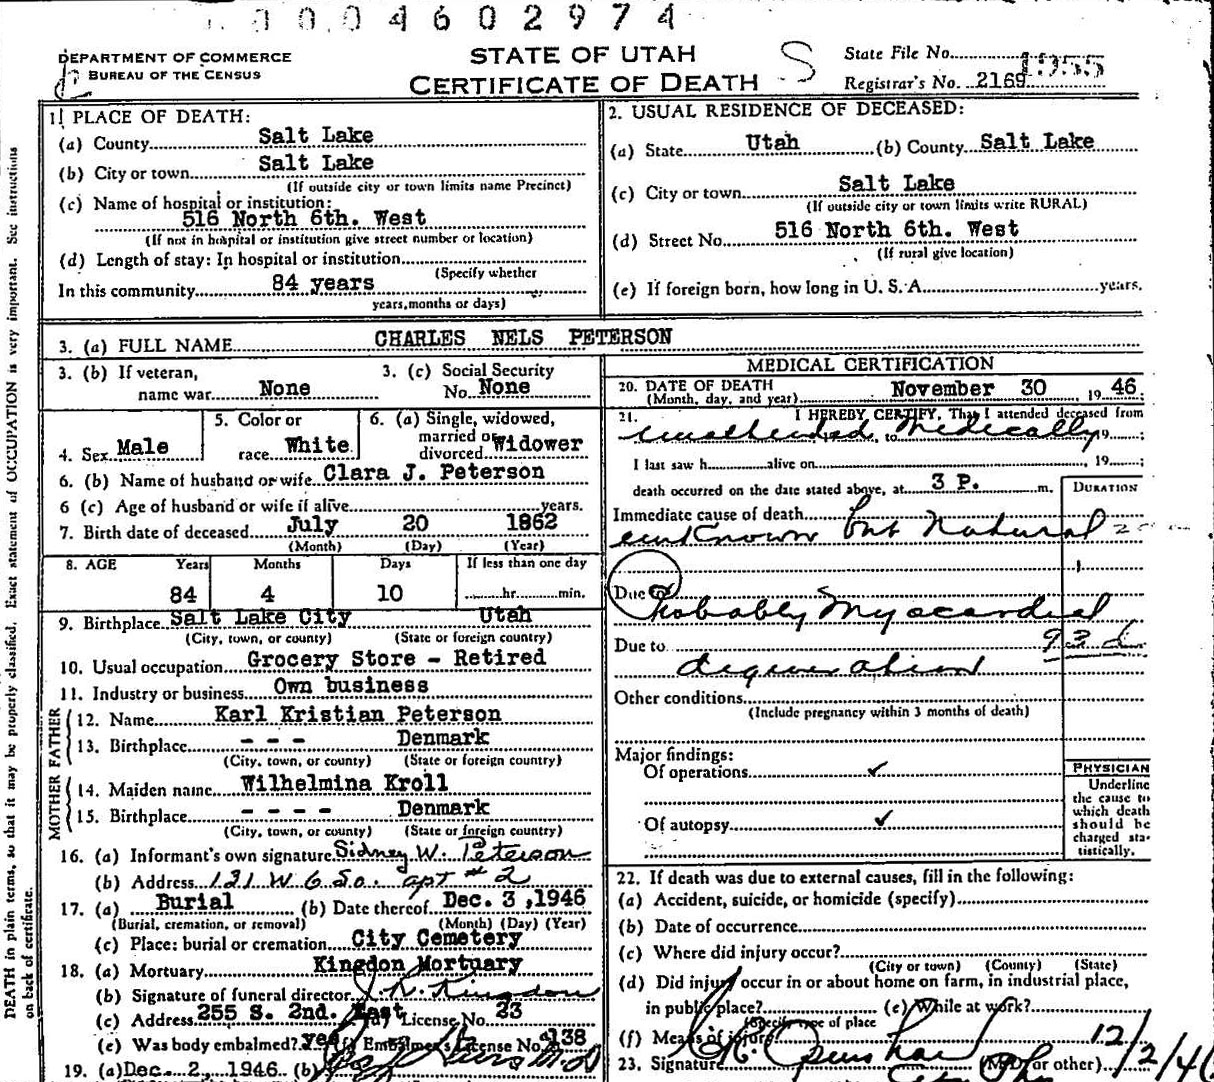 0004602974
DEPARTMENT OF COMMERCE
BUREAU OF THE CENSUS
STATE OF UTAH
CERTIFICATE OF DEATH
S
State File No. 1955
Registrar's No. 2169
1. PLACE OF DEATH:
(a) County Salt Lake
(b) City or town Salt Lake
(If outside city or town limits name Precinct)
(c) Name of hospital or institution:
516 North 6th. West
(If not in hospital or institution give street number or location)
(d) Length of stay: In hospital or institution
(Specify whether
In this community 84 years
years, months or days)
2. USUAL RESIDENCE OF DECEASED:
(a) State Utah (b) County Salt Lake
(c) City or town Salt Lake
(If outside city or town limits write RURAL)
(d) Street No. 516 North 6th. West
(If rural give location)
(e) If foreign born, how long in U. S. A. years.
3. (a) FULL NAME CHARLES NELS PETERSON
3. (b) If veteran, name war None
3. (c) Social Security No. None
4. Sex Male
5. Color or race White
6. (a) Single, widowed, married or divorced Widower
6. (b) Name of husband or wife Clara J. Peterson
6 (c) Age of husband or wife if alive years.
7. Birth date of deceased July 20 1862
(Month) (Day) (Year)
8. AGE Years Months Days If less than one day
84 4 10 hr. min.
9. Birthplace Salt Lake City Utah
(City, town, or county) (State or foreign country)
10. Usual occupation Grocery Store - Retired
11. Industry or business Own business
FATHER
12. Name Karl Kristian Peterson
13. Birthplace - - - Denmark
(City, town, or county) (State or foreign country)
MOTHER
14. Maiden name Wilhelmina Kroll
15. Birthplace - - - - Denmark
(City, town, or county) (State or foreign country)
16. (a) Informant's own signature Sidney W. Peterson
(b) Address 131 W 6 So. apt # 2
17. (a) Burial (b) Date thereof Dec. 3, 1946
(Burial, cremation, or removal) (Month) (Day) (Year)
(c) Place: burial or cremation City Cemetery
18. (a) Mortuary Kingdon Mortuary
(b) Signature of funeral director Kingdon
(c) Address 255 S. 2nd. East (d) License No. 23
(e) Was body embalmed? yes (f) Embalmer's License No. 138
19. (a) Dec. 2, 1946 (b)
MEDICAL CERTIFICATION
20. DATE OF DEATH November 30, 1946;
(Month, day, and year)
21. I HEREBY CERTIFY, That I attended deceased from
unattended, to Medically 19 ;
I last saw h alive on , 19 ;
death occurred on the date stated above, at 3 P. m.
DURATION
Immediate cause of death
unknown but Natural
Due to
Probably Myocardial
Due to 93 d
degeneration
Other conditions
(Include pregnancy within 3 months of death)
Major findings:
Of operations ✓
Of autopsy ✓
PHYSICIAN
Underline
the cause to
which death
should be
charged sta-
tistically.
22. If death was due to external causes, fill in the following:
(a) Accident, suicide, or homicide (specify)
(b) Date of occurrence
(c) Where did injury occur?
(City or town) (County) (State)
(d) Did injury occur in or about home on farm, in industrial place,
in public place? (e) While at work?
(Specify type of place
(f) Means of injury 12/2/46
23. Signature (M.D. or other)
DEATH in plain terms, so that it may be properly classified. Exact statement of OCCUPATION is very important. See instructions
on back of certificate.